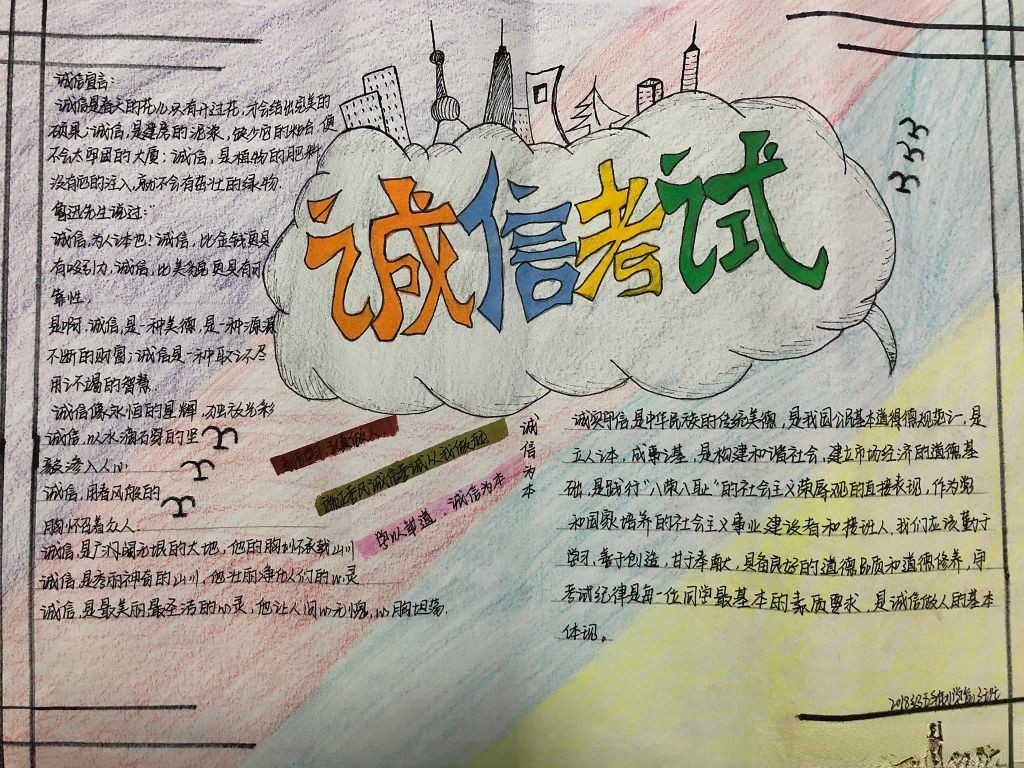 诚信考试
诚信宣言:
诚信是春天的花儿,只有开过花,才会结出完美的
硕果;诚信,是建房的泥浆,缺少它的粘合,便
不会太牢固的大厦;诚信,是植物的肥料
没有它的注入,就不会有茁壮的绿物.
鲁迅先生说过:"
诚信,为人之本也!诚信,比金钱更具
有吸引力,诚信,比美貌更具有可
靠性,
是啊,诚信,是一种美德,是一种源源
不断的财富;诚信是一种取之不尽
用之不竭的智慧
诚信像永恒的星辉,独放光彩
诚信,以水滴石穿的坚
毅渗入人心
诚信,用春风般的
胸怀
诚信,是广沃阔无垠的大地,他的胸怀承载山川
诚信,是秀丽神奇的山川,他壮丽净化人们的心灵
诚信,是最美丽最圣洁的心灵,他让人间心无惧,心胸坦荡.
真做人
端正考风诚信考试从我做起
学以载道,诚信为本
诚信为本
诚实守信是中华民族的传统美德,是我国公民基本道得德规范之一,是
立人之本,成事之基,是构建和谐社会,建立市场经济的道德基
础,是践行"八荣八耻"的社会主义荣辱观的直接表现,作为党
和国家培养的社会主义事业建设者和接班人,我们应该勤于
学习,善于创造,甘于奉献,具备良好的道德品质和道德修养,守
考试纪律是每一位同学最基本的素质要求,是诚信做人的基本
体现。